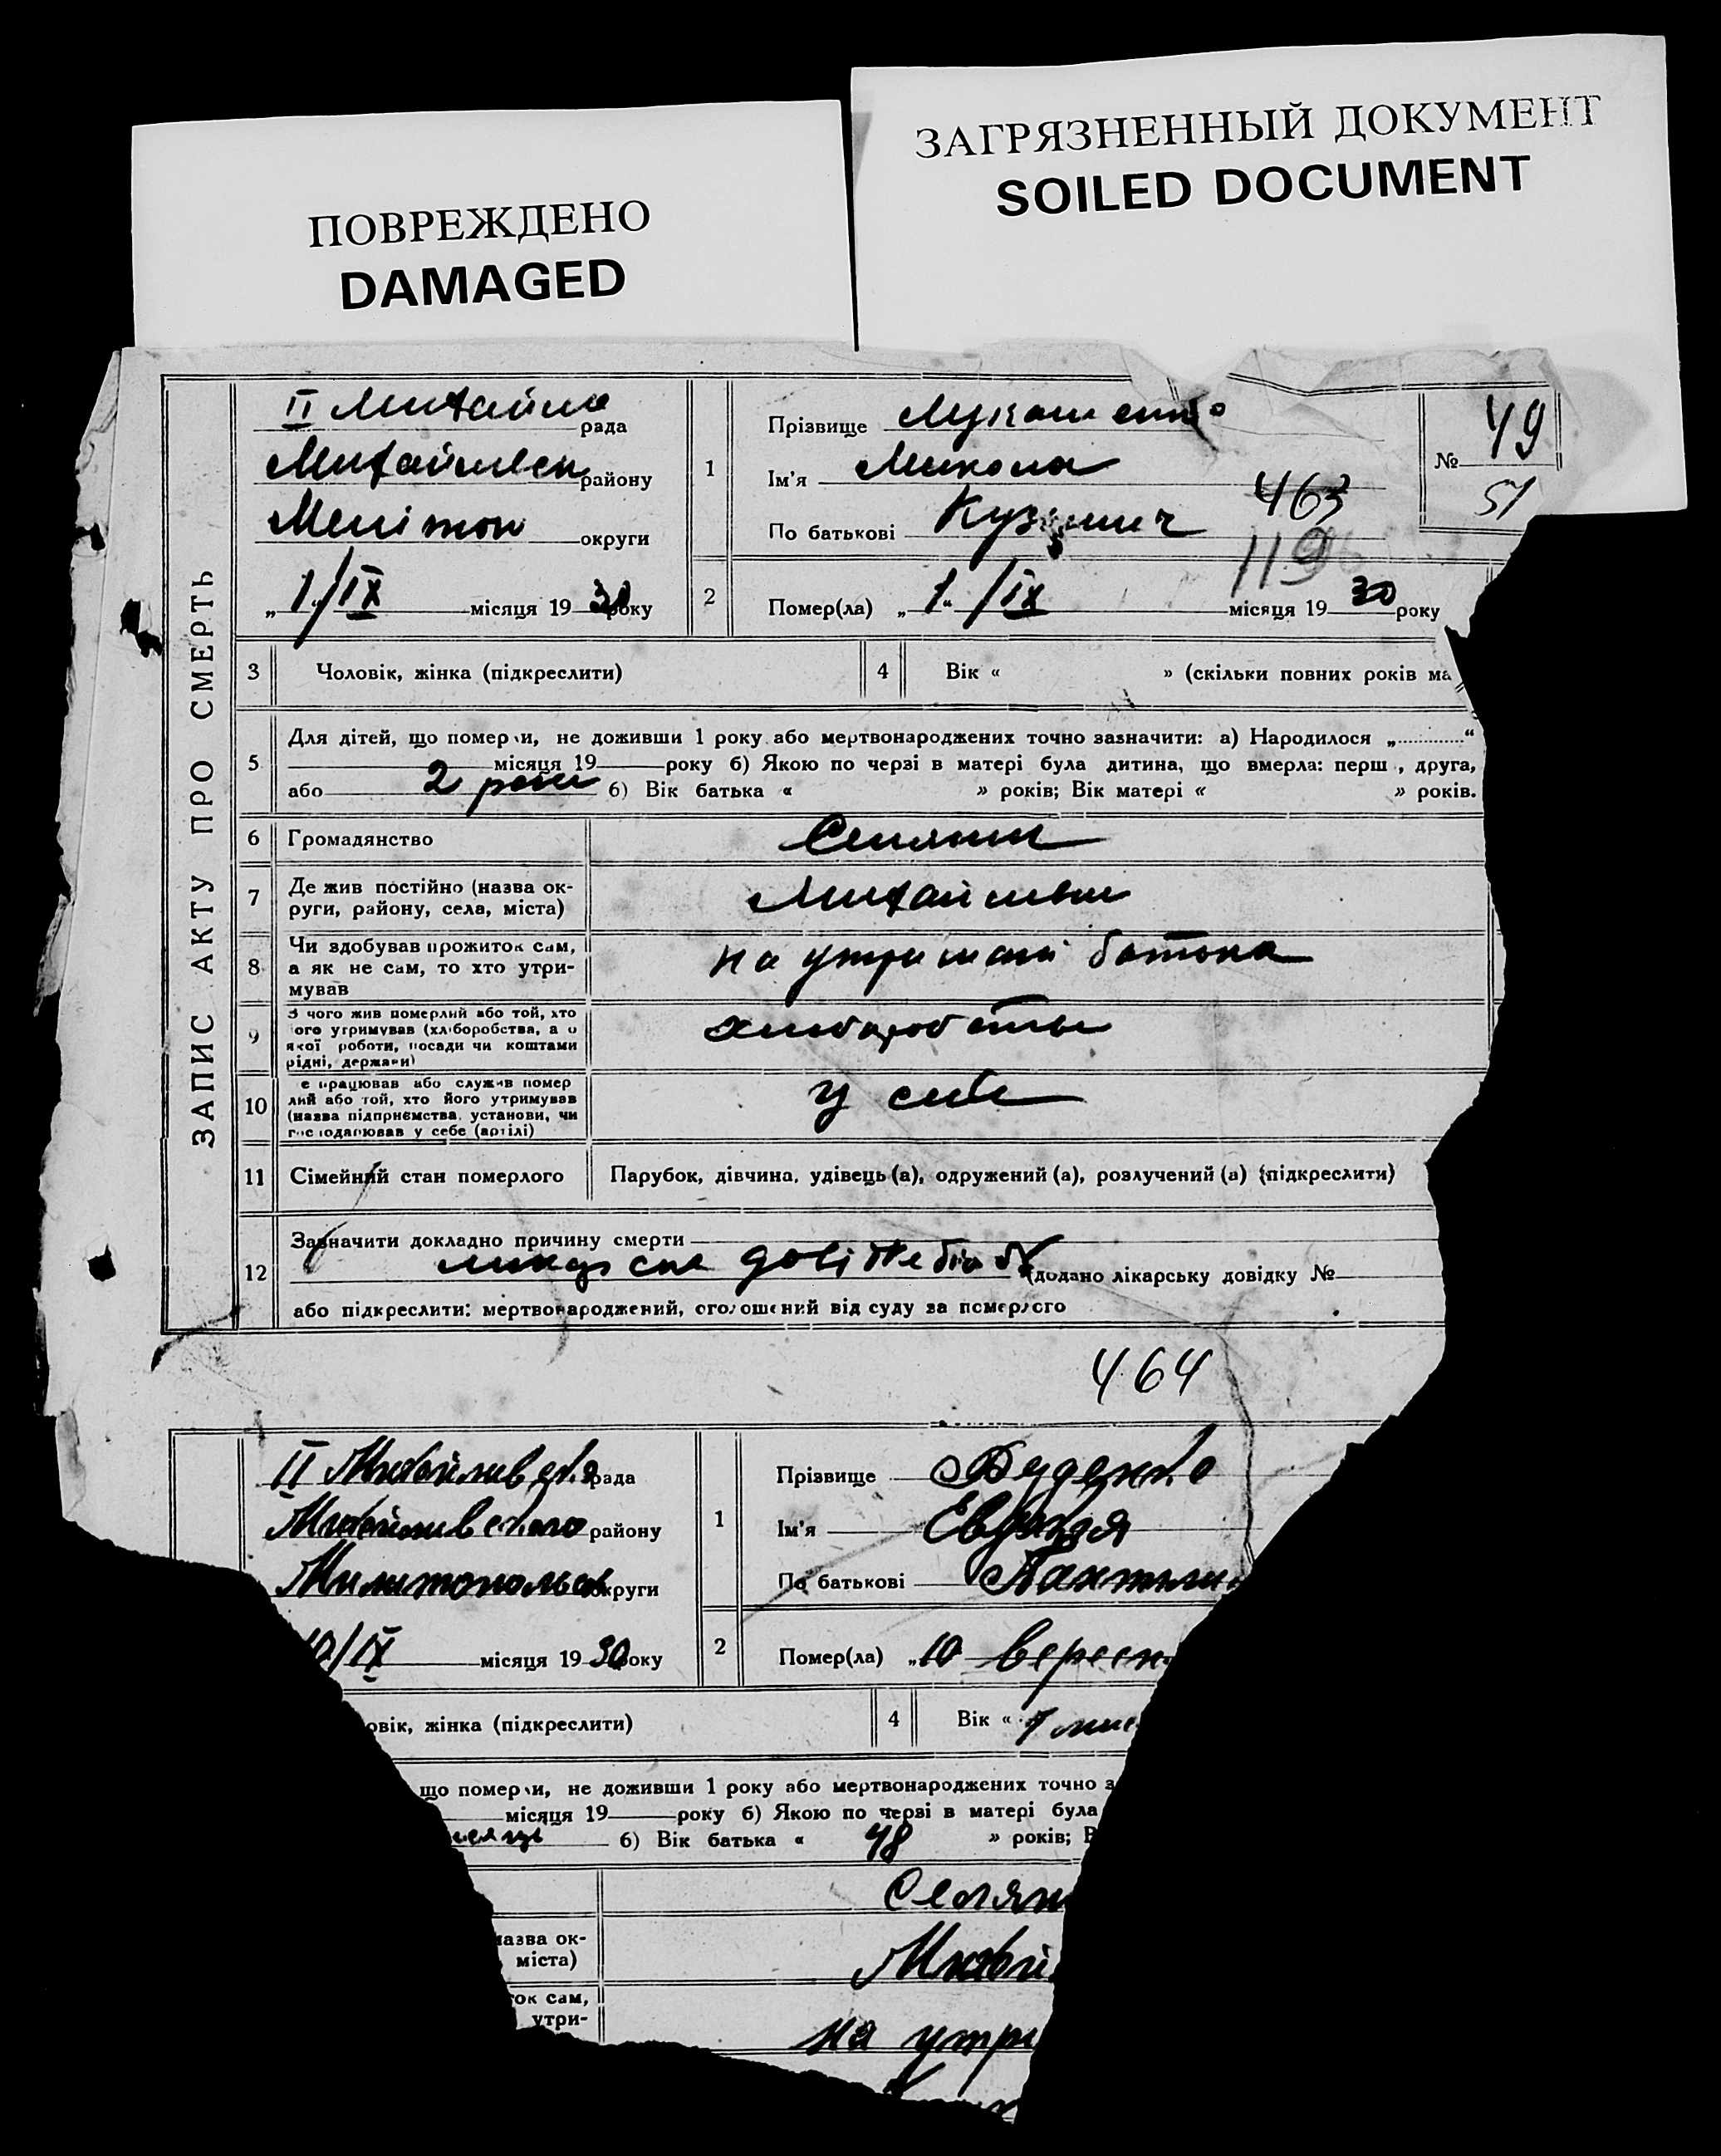 ПОВРЕЖДЕНО
DAMAGED
ЗАГРЯЗНЕННЫЙ ДОКУМЕНТ
SOILED DOCUMENT
ЗАПИС АКТУ ПРО СМЕРТЬ
II рада
району
округи
„ 1 /IX місяця 19 30 року
1
Прізвище Лукашенко
Ім'я Микола
По батькові
463
119
№ 49
51
2
Помер(ла) „ 1 “ /IX місяця 19 30 року
3 Чоловік, жінка (підкреслити)
4 Вік « » (скільки повних років ма
5 Для дітей, що померли, не доживши 1 року або мертвонароджених точно зазначити: а) Народилося „ “
місяця 19 року б) Якою по черзі в матері була дитина, що вмерла: перш , друга,
або 2 роки б) Вік батька « » років; Вік матері « » років.
6 Громадянство Селянин
7 Де жив постійно (назва ок-
руги, району, села, міста)
8 Чи здобував прожиток сам,
а як не сам, то хто утри-
мував
на утримані батька
9 З чого жив померлий або той, хто
ого утримував (хліборобства, а о
якої роботи, посади чи коштами
рідні, держави)
10 е працював або служив помер
лий або той, хто його утримував
(назва підприємства, установи, чи
господарював у себе (артілі)
у себе
11 Сімейний стан померлого Парубок, дівчина, удівець (а), одружений (а), розлучений (а) (підкреслити)
12 Зазначити докладно причину смерти
(додано лікарську довідку №
або підкреслити: мертвонароджений, оголошений від суду за померлого
464
II Михайливська рада
Михайливського району
округи
/IX місяця 19 30 року
1
Прізвище
Ім'я
По батькові
2
Помер(ла) „ 10 вересн
овік, жінка (підкреслити)
4 Вік «
що померли, не доживши 1 року або мертвонароджених точно з
місяця 19 року б) Якою по черзі в матері була
б) Вік батька « 48 » років; В
Селян
назва ок-
міста)
Михай
ок сам,
утри-
на утри